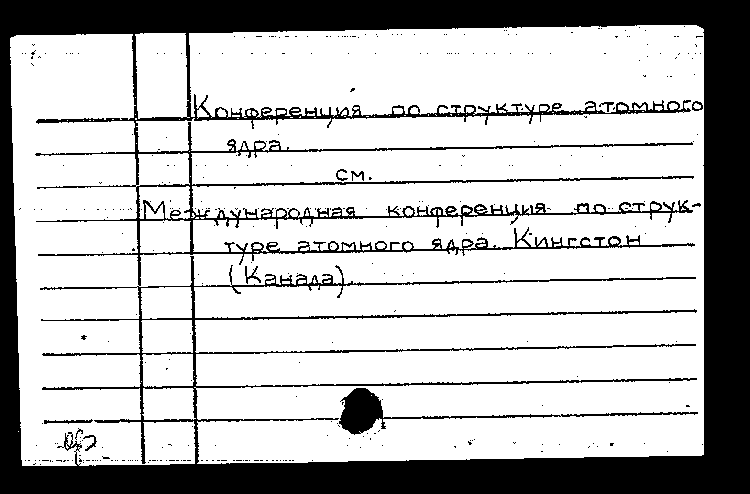 Конференция по структуре атомного
ядра.
см.
Международная конференция по струк-
туре атомного ядра. Кингстон
(Канада).